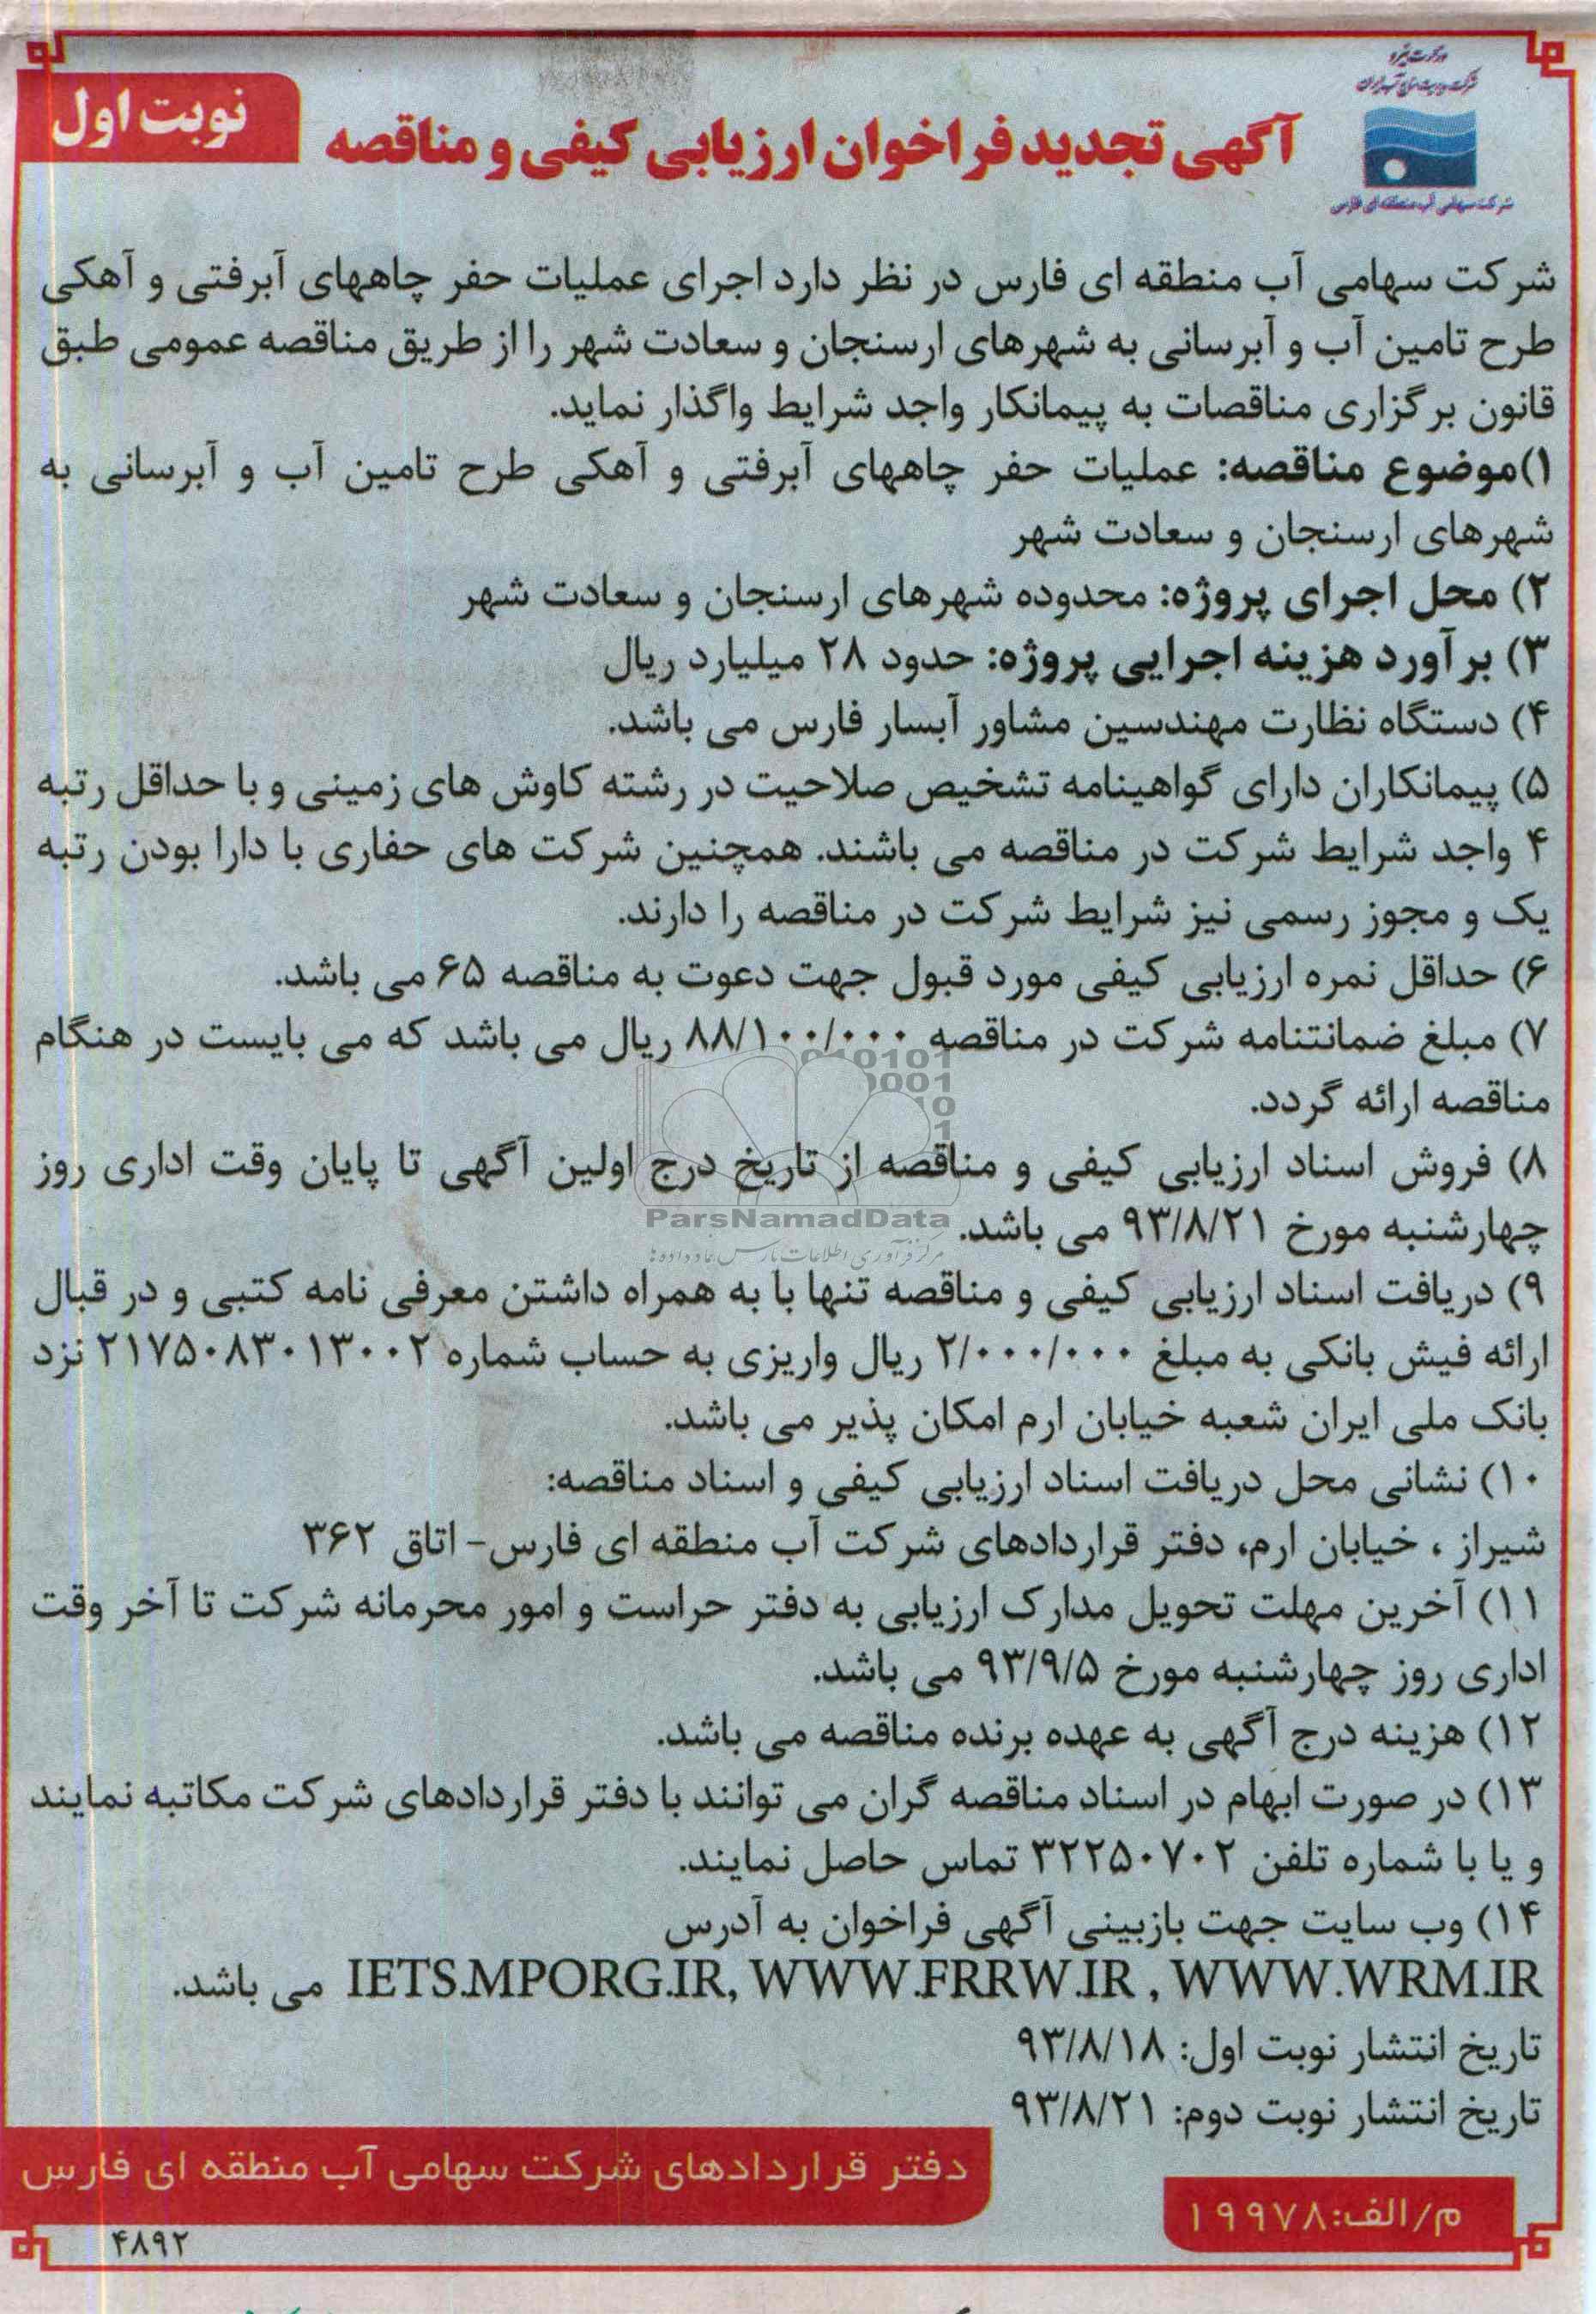 وزارت نیرو
شرکت مدیریت منابع آب ایران
شرکت سهامی آب منطقه ای فارس
نوبت اول
آگهی تجدید فراخوان ارزیابی کیفی و مناقصه
شرکت سهامی آب منطقه ای فارس در نظر دارد اجرای عملیات حفر چاههای آبرفتی و آهکی
طرح تامین آب و آبرسانی به شهرهای ارسنجان و سعادت شهر را از طریق مناقصه عمومی طبق
قانون برگزاری مناقصات به پیمانکار واجد شرایط واگذار نماید.
۱)موضوع مناقصه: عملیات حفر چاههای آبرفتی و آهکی طرح تامین آب و آبرسانی به
شهرهای ارسنجان و سعادت شهر
۲) محل اجرای پروژه: محدوده شهرهای ارسنجان و سعادت شهر
۳) برآورد هزینه اجرایی پروژه: حدود ۲۸ میلیارد ریال
۴) دستگاه نظارت مهندسین مشاور آبسار فارس می باشد.
۵) پیمانکاران دارای گواهینامه تشخیص صلاحیت در رشته کاوش های زمینی و با حداقل رتبه
۴ واجد شرایط شرکت در مناقصه می باشند. همچنین شرکت های حفاری با دارا بودن رتبه
یک و مجوز رسمی نیز شرایط شرکت در مناقصه را دارند.
۶) حداقل نمره ارزیابی کیفی مورد قبول جهت دعوت به مناقصه ۶۵ می باشد.
۷) مبلغ ضمانتنامه شرکت در مناقصه ۸۸/۱۰۰/۰۰۰ ریال می باشد که می بایست در هنگام
مناقصه ارائه گردد.
۸) فروش اسناد ارزیابی کیفی و مناقصه از تاریخ درج اولین آگهی تا پایان وقت اداری روز
چهارشنبه مورخ ۹۳/۸/۲۱ می باشد.
ParsNamadData
مرکز فرآوری اطلاعات پارس نماد داده ها
۹) دریافت اسناد ارزیابی کیفی و مناقصه تنها با به همراه داشتن معرفی نامه کتبی و در قبال
ارائه فیش بانکی به مبلغ ۲/۰۰۰/۰۰۰ ریال واریزی به حساب شماره ۲۱۷۵۰۸۳۰۱۳۰۰۲ نزد
بانک ملی ایران شعبه خیابان ارم امکان پذیر می باشد.
۱۰) نشانی محل دریافت اسناد ارزیابی کیفی و اسناد مناقصه:
شیراز ، خیابان ارم، دفتر قراردادهای شرکت آب منطقه ای فارس- اتاق ۳۶۲
۱۱) آخرین مهلت تحویل مدارک ارزیابی به دفتر حراست و امور محرمانه شرکت تا آخر وقت
اداری روز چهارشنبه مورخ ۹۳/۹/۵ می باشد.
۱۲) هزینه درج آگهی به عهده برنده مناقصه می باشد.
۱۳) در صورت ابهام در اسناد مناقصه گران می توانند با دفتر قراردادهای شرکت مکاتبه نمایند
و یا با شماره تلفن ۳۲۲۵۰۷۰۲ تماس حاصل نمایند.
۱۴) وب سایت جهت بازبینی آگهی فراخوان به آدرس
IETS.MPORG.IR, WWW.FRRW.IR , WWW.WRM.IR می باشد.
تاریخ انتشار نوبت اول: ۹۳/۸/۱۸
تاریخ انتشار نوبت دوم: ۹۳/۸/۲۱
دفتر قراردادهای شرکت سهامی آب منطقه ای فارس
م/الف:۱۹۹۷۸
۴۸۹۲